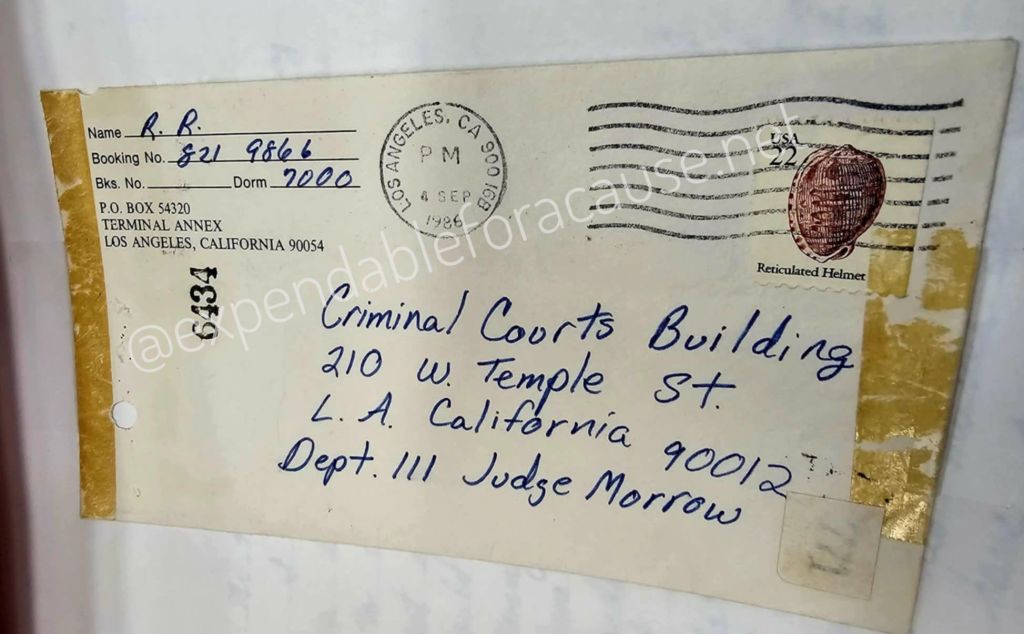 Name R. R.
Booking No. 821 9866
Bks. No. Dorm 7000
P.O. BOX 54320
TERMINAL ANNEX
LOS ANGELES, CALIFORNIA 90054
6434
LOS ANGELES, CA 900 16B
PM
4 SEP
1986
USA
22
Reticulated Helmet
@expendableforacause.net
Criminal Courts Building
210 W. Temple St.
L. A. California 90012
Dept. 111 Judge Morrow